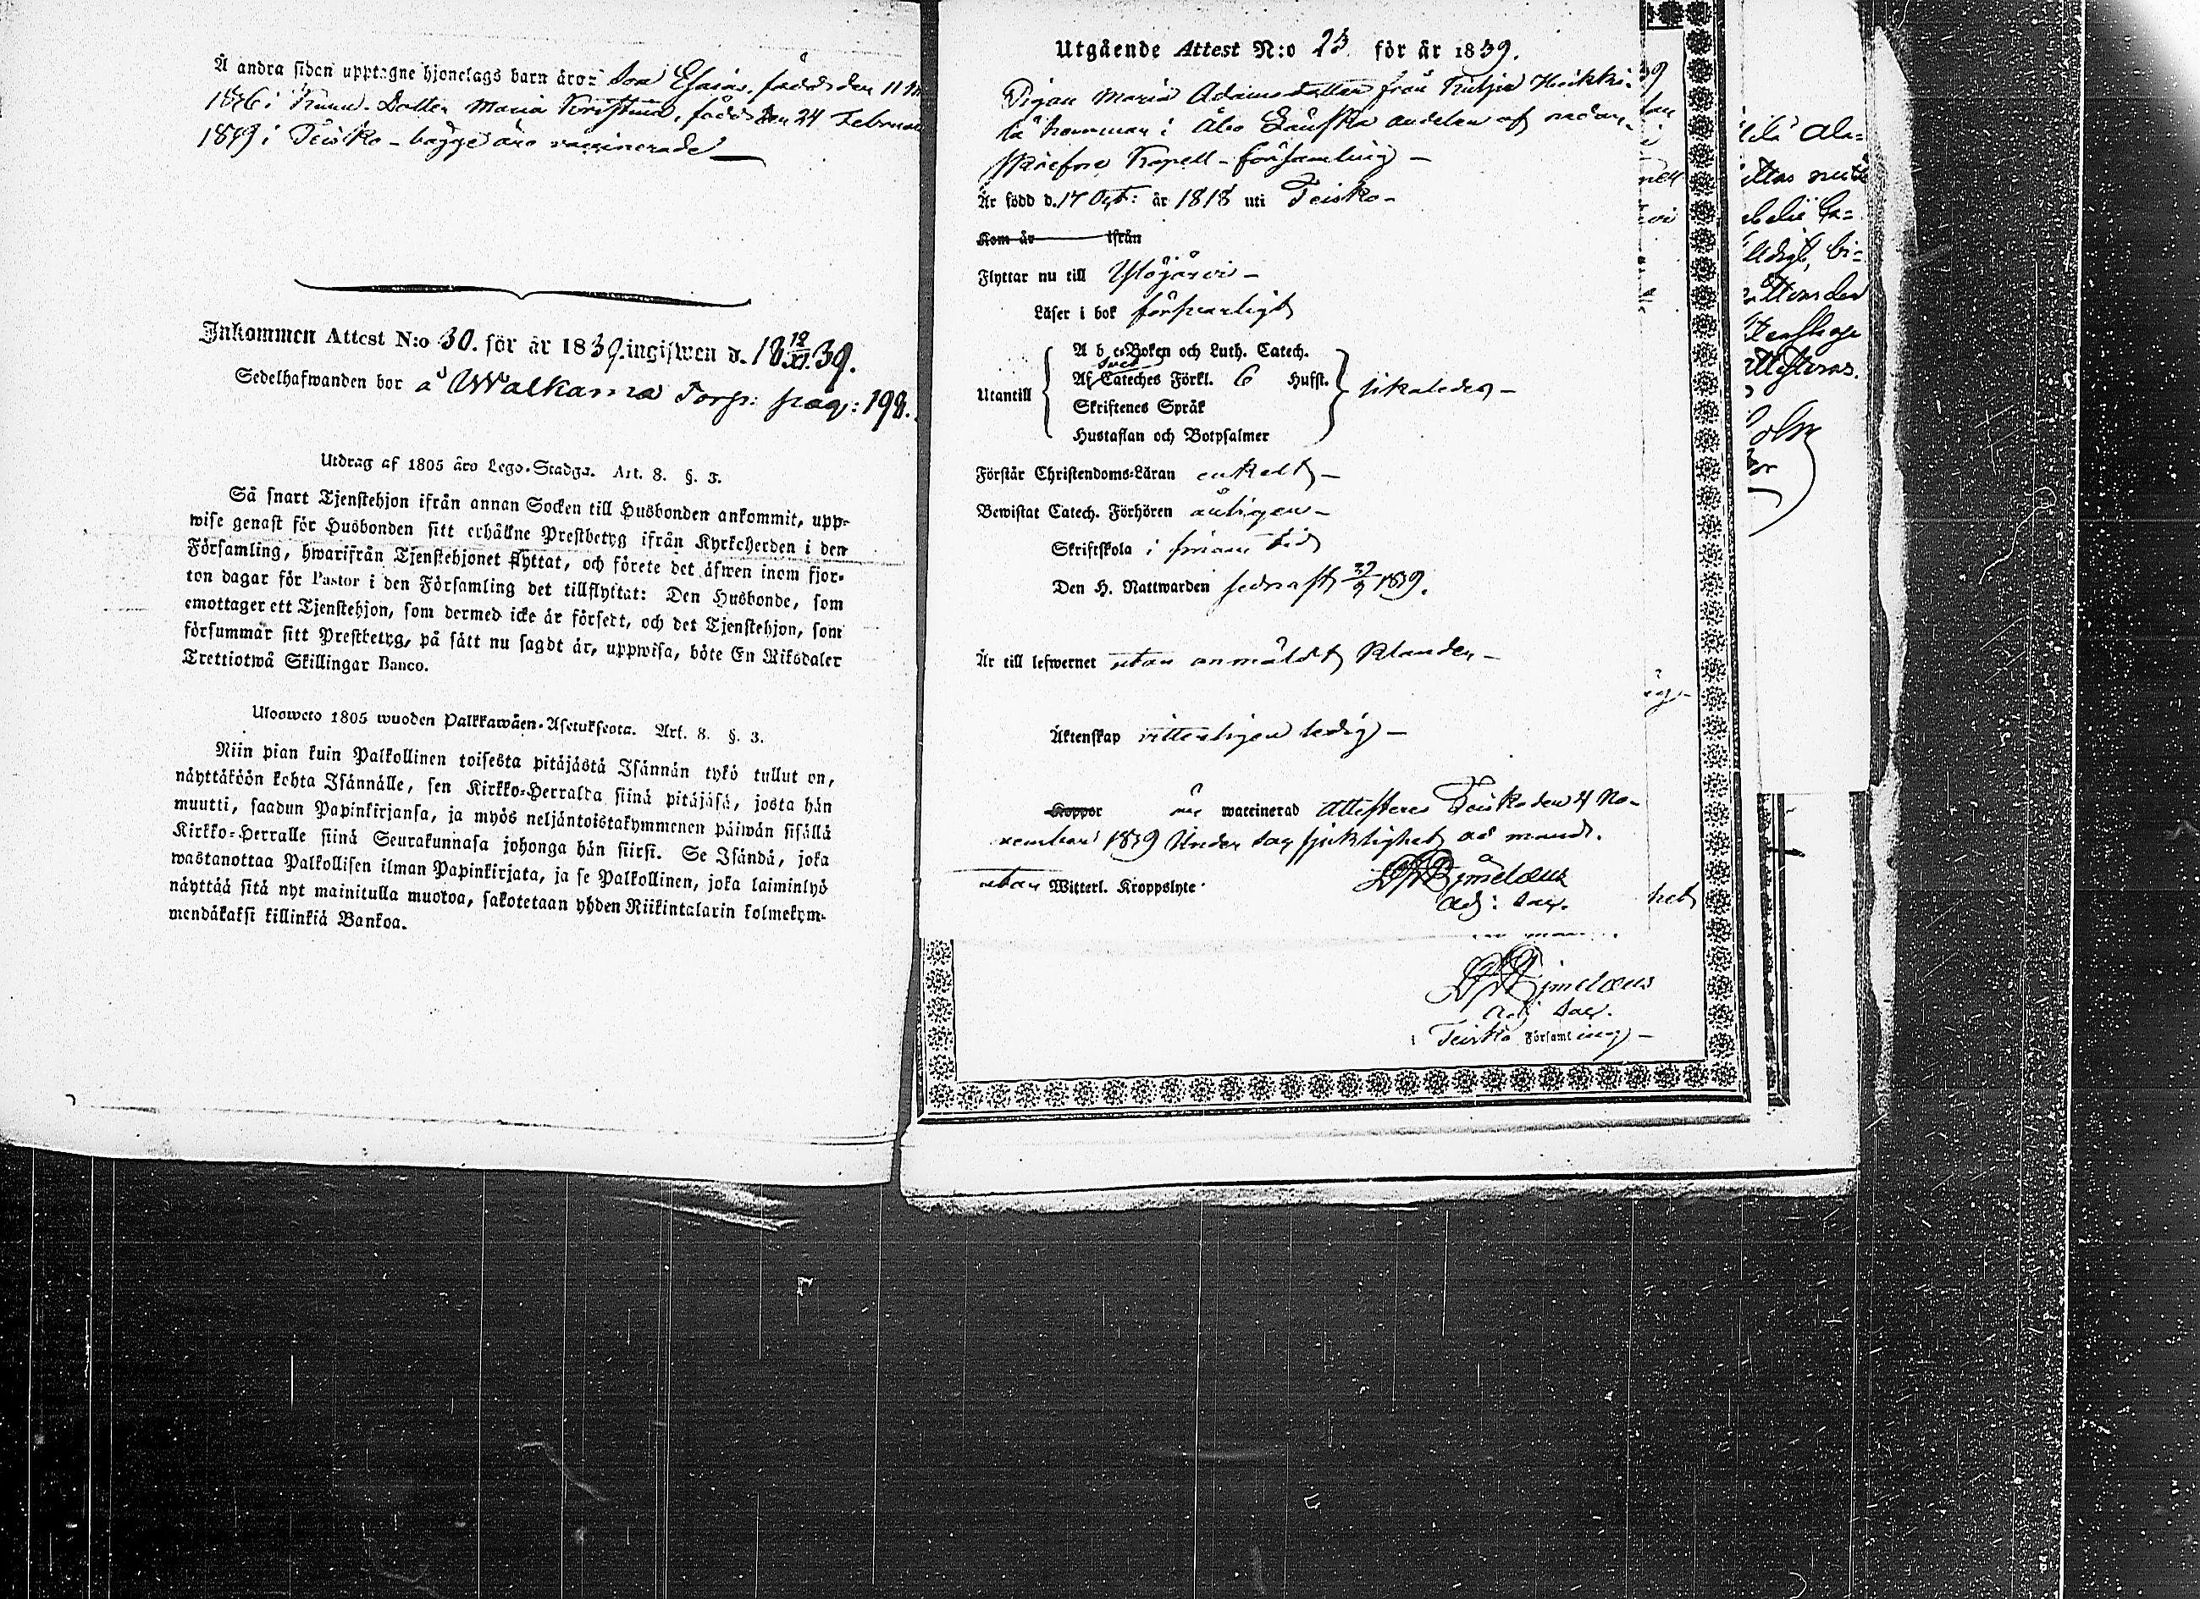 Å andra sidan upptagne hjonelags barn äro: Son Esaias, född den 11
1836 i Kuru. Dotter Maria Kristina, född den 24 Februari
1839 i Teisko - bägge äro vaccinerade
Inkommen Attest N:o 30. för år 1839. ingifwen d. 18 12/XI 39.
Sedelhafwanden bor å Walkama Torp: pag: 198.
Utdrag af 1805 års Lego-Stadga. Art. 8. §. 3.
Så snart Tjenstehjon ifrån annan Socken till Husbonden ankommit, upp-
wise genast för Husbonden sitt erhållne Prestbetyg ifrån Kyrkoherden i den
Församling, hwarifrån Tjenstehjonet flyttat, och förete det äfwen inom fjor-
ton dagar för Pastor i den Församling det tillflyttat: Den Husbonde, som
emottager ett Tjenstehjon, som dermed icke är försedt, och det Tjenstehjon, som
försummar sitt Prestbetyg, på sätt nu sagdt är, uppwisa, böte En Riksdaler
Trettiotwå Skillingar Banco.
Uloosweto 1805 wuoden Palkkawäen-Asetuksesta. Art. 8. §. 3.
Niin pian kuin Palkollinen toisesta pitäjästä Isännän tykö tullut on,
näyttäköön kohta Isännälle, sen Kirkko-Herralda siinä pitäjäsä, josta hän
muutti, saadun Papinkirjansa, ja myös neljäntoistakymmenen päiwän sisällä
Kirkko-Herralle siinä Seurakunnasa johonga hän siirsi. Se Isändä, joka
wastanottaa Palkollisen ilman Papinkirjata, ja se Palkollinen, joka laiminlyö
näyttää sitä nyt mainitulla muotoa, sakotetaan yhden Riikintalarin kolmekym-
mendäkaksi killinkiä Bankoa.
Utgående Attest N:o 23 för år 1839.
Pigan Maria Adamsdotter från Kutja Heikki-
lä hemman i Åbo Länska andelen af nedan-
skrefne Kapell-församling -
Är född d. 17 Oct: år 1818 uti Teisko -
Kom år ifrån
Flyttar nu till Ylöjärvi -
Läser i bok försvarligt
Utantill
A b c-Boken och Luth. Catech.
Sveb
Af Cateches Förkl. 6 Hufst.
Skriftenes Språk
Hustaflan och Botpsalmer
likaledes -
Förstår Christendoms-Läran enkelt -
Bewistat Catech. Förhören årligen -
Skriftskola i sinom tid
Den H. Nattwarden sednast 29/9 1839.
Är till lefwernet utan anmäldt klander -
Äktenskap vitterligen ledig -
Koppor är waccinerad attesteras Teisko den 4 No-
vember 1839 Under Sac sjuklighet ad mand.
utan Witterl. Kroppslyte
Bimelæus
adj: Sac.
het
Bimelæus
Adj Sac.
i Teisko Församling -